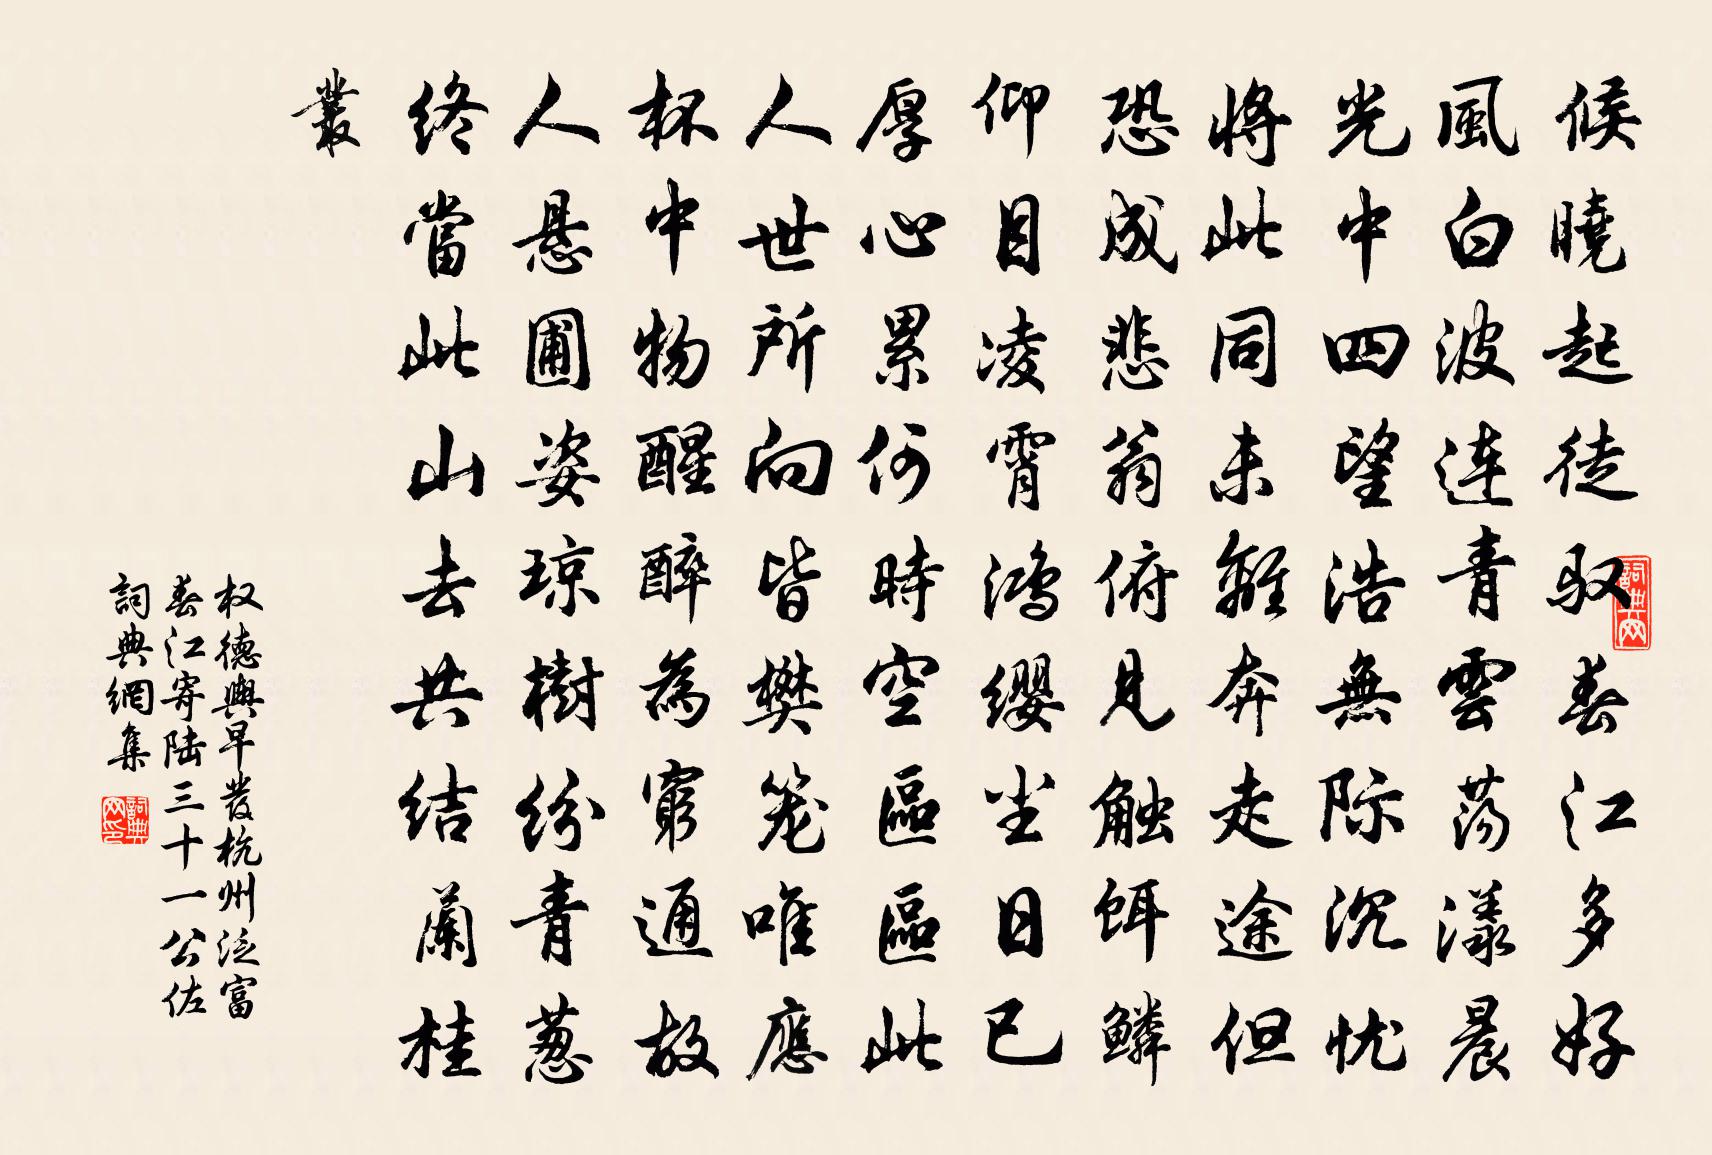 候曉起徒馭春江多好
風白波連青雲荡漾晨
光中四望浩無际沉忧
將此同未離奔走途但
恐成悲翁俯見触餌鳞
仰目凌霄鸿缨尘日已
厚心累何時空區區此
人世所向皆樊笼唯應
杯中物醒醉為窮通故
人悬圃姿琼樹纷青葱
终當此山去共结蘭桂
叢
权德輿早發杭州泛富
春江寄陆三十一公佐
詞典網集
詞典网
詞典网印